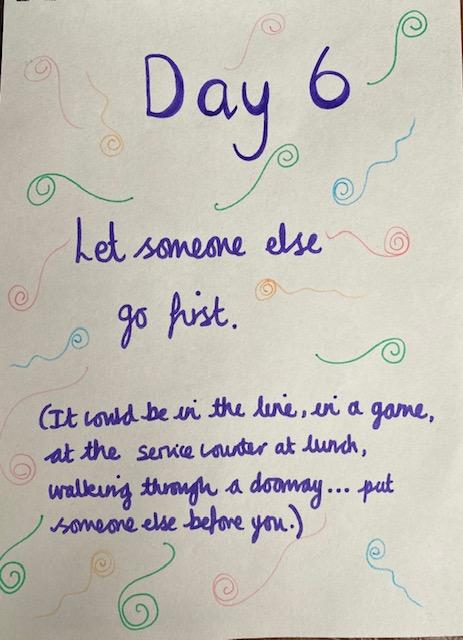 Day 6
Let someone else
go first.
(It could be in the line, in a game,
at the service counter at lunch,
walking through a doorway... put
someone else before you.)